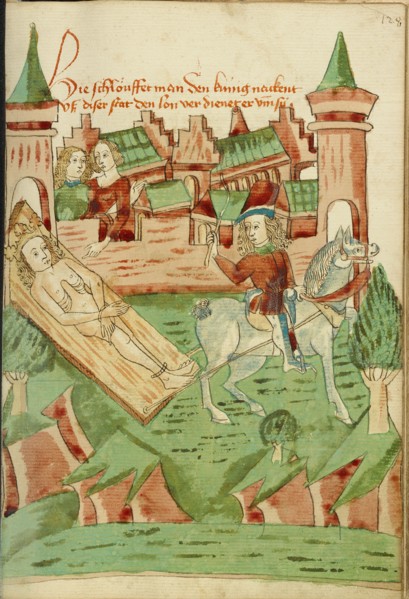 128
Hie schlouffet man den kúnig nackent
vß diser stat den lon ver dienet er vm sú